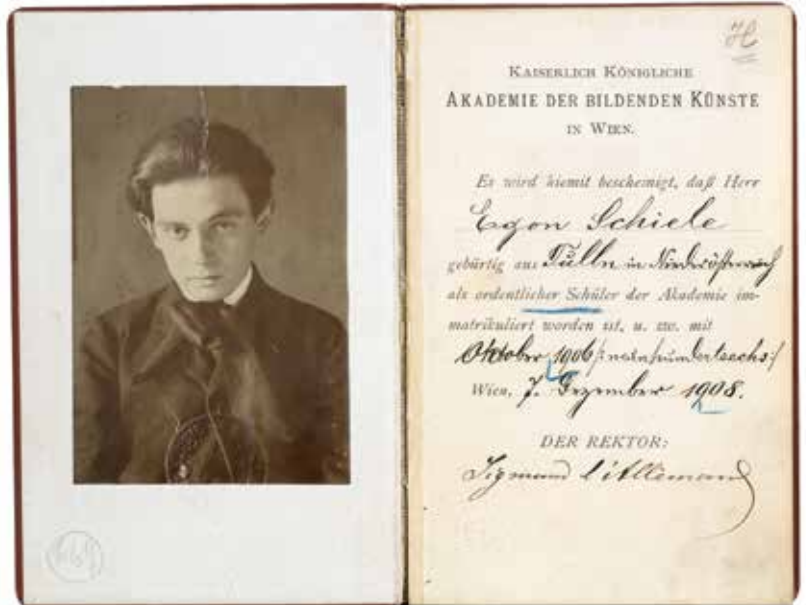 KAISERLICH KÖNIGLICHE
AKADEMIE DER BILDENDEN KÜNSTE
IN WIEN.
Es wird hiemit bescheinigt, daß Herr
Egon Schiele
gebürtig aus Tulln in Niederösterreich
als ordentlicher Schüler der Akademie im-
matrikuliert worden ist, u. zw. mit
Oktober 1906 /: neunhundertsechs :/
Wien, 7. Dezember 1908.
DER REKTOR:
Sigmund L'Allemand